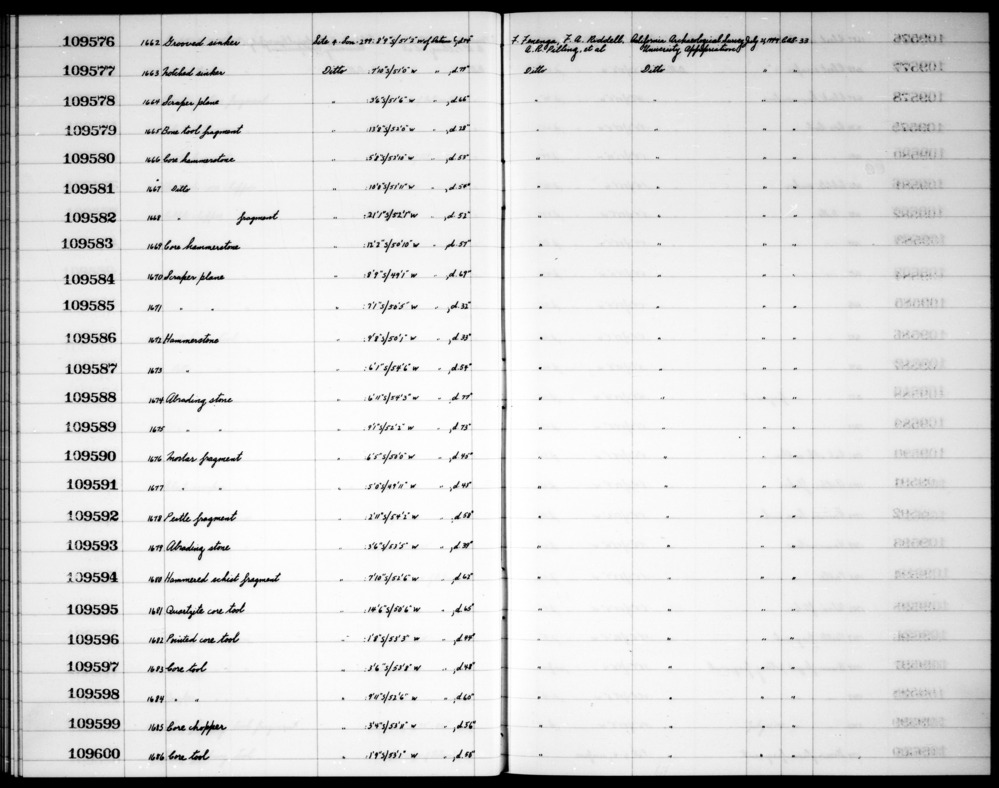 109576 1662 Grooved sinker Site 4-Son-299: 8'9"S/57'5"W of datum F. Fenenga, F. A. Riddell, California Archaeological Survey July 1949 Cat. 33
A. R. Pilling, et al University Appropriation
109577 1663 Notched sinker Ditto :7'10"S/51'0"W " , d.77" Ditto Ditto " "
109578 1664 Scraper plane " :3'6"S/51'6"W " , d.66" " " " "
109579 1665 Bone tool fragment " :13'8"S/52'0"W " , d.28" " " " "
109580 1666 Core hammerstone " :5'8"S/53'10"W " , d.55" " " " "
109581 1667 Ditto " :10'8"S/51'11"W " , d.54" " " " "
109582 1668 " fragment " :21'1"S/52'1"W " , d.52" " " " "
109583 1669 Core hammerstone " :12'2"S/50'10"W " , d.57" " " " "
109584 1670 Scraper plane " :8'9"S/49'1"W " , d.69" " " " "
109585 1671 " " " :7'1"S/50'5"W " , d.32" " " " "
109586 1672 Hammerstone " :9'8"S/50'1"W " , d.33" " " " "
109587 1673 " " :6'1"S/54'6"W " , d.54" " " " "
109588 1674 Abrading stone " :6'11"S/54'3"W " , d.77" " " " "
109589 1675 " " " :9'1"S/52'2"W " , d.73" " " " "
109590 1676 Mortar fragment " :6'5"S/58'0"W " , d.45" " " " "
109591 1677 " " " :5'0"S/49'11"W " , d.45" " " " "
109592 1678 Pestle fragment " :2'11"S/54'2"W " , d.58" " " " "
109593 1679 Abrading stone " :3'6"S/53'5"W " , d.39" " " " "
109594 1680 Hammered schist fragment " :7'10"S/52'6"W " , d.63" " " " "
109595 1681 Quartzite core tool " :14'6"S/50'6"W " , d.65" " " " "
109596 1682 Pointed core tool " :1'8"S/53'3"W " , d.44" " " " "
109597 1683 Core tool " :3'6"S/53'8"W " , d.48" " " " "
109598 1684 " " " :9'11"S/52'6"W " , d.60" " " " "
109599 1685 Core chopper " :3'4"S/53'8"W " , d.56" " " " "
109600 1686 Core tool " :1'9"S/53'1"W " , d.55" " " " "